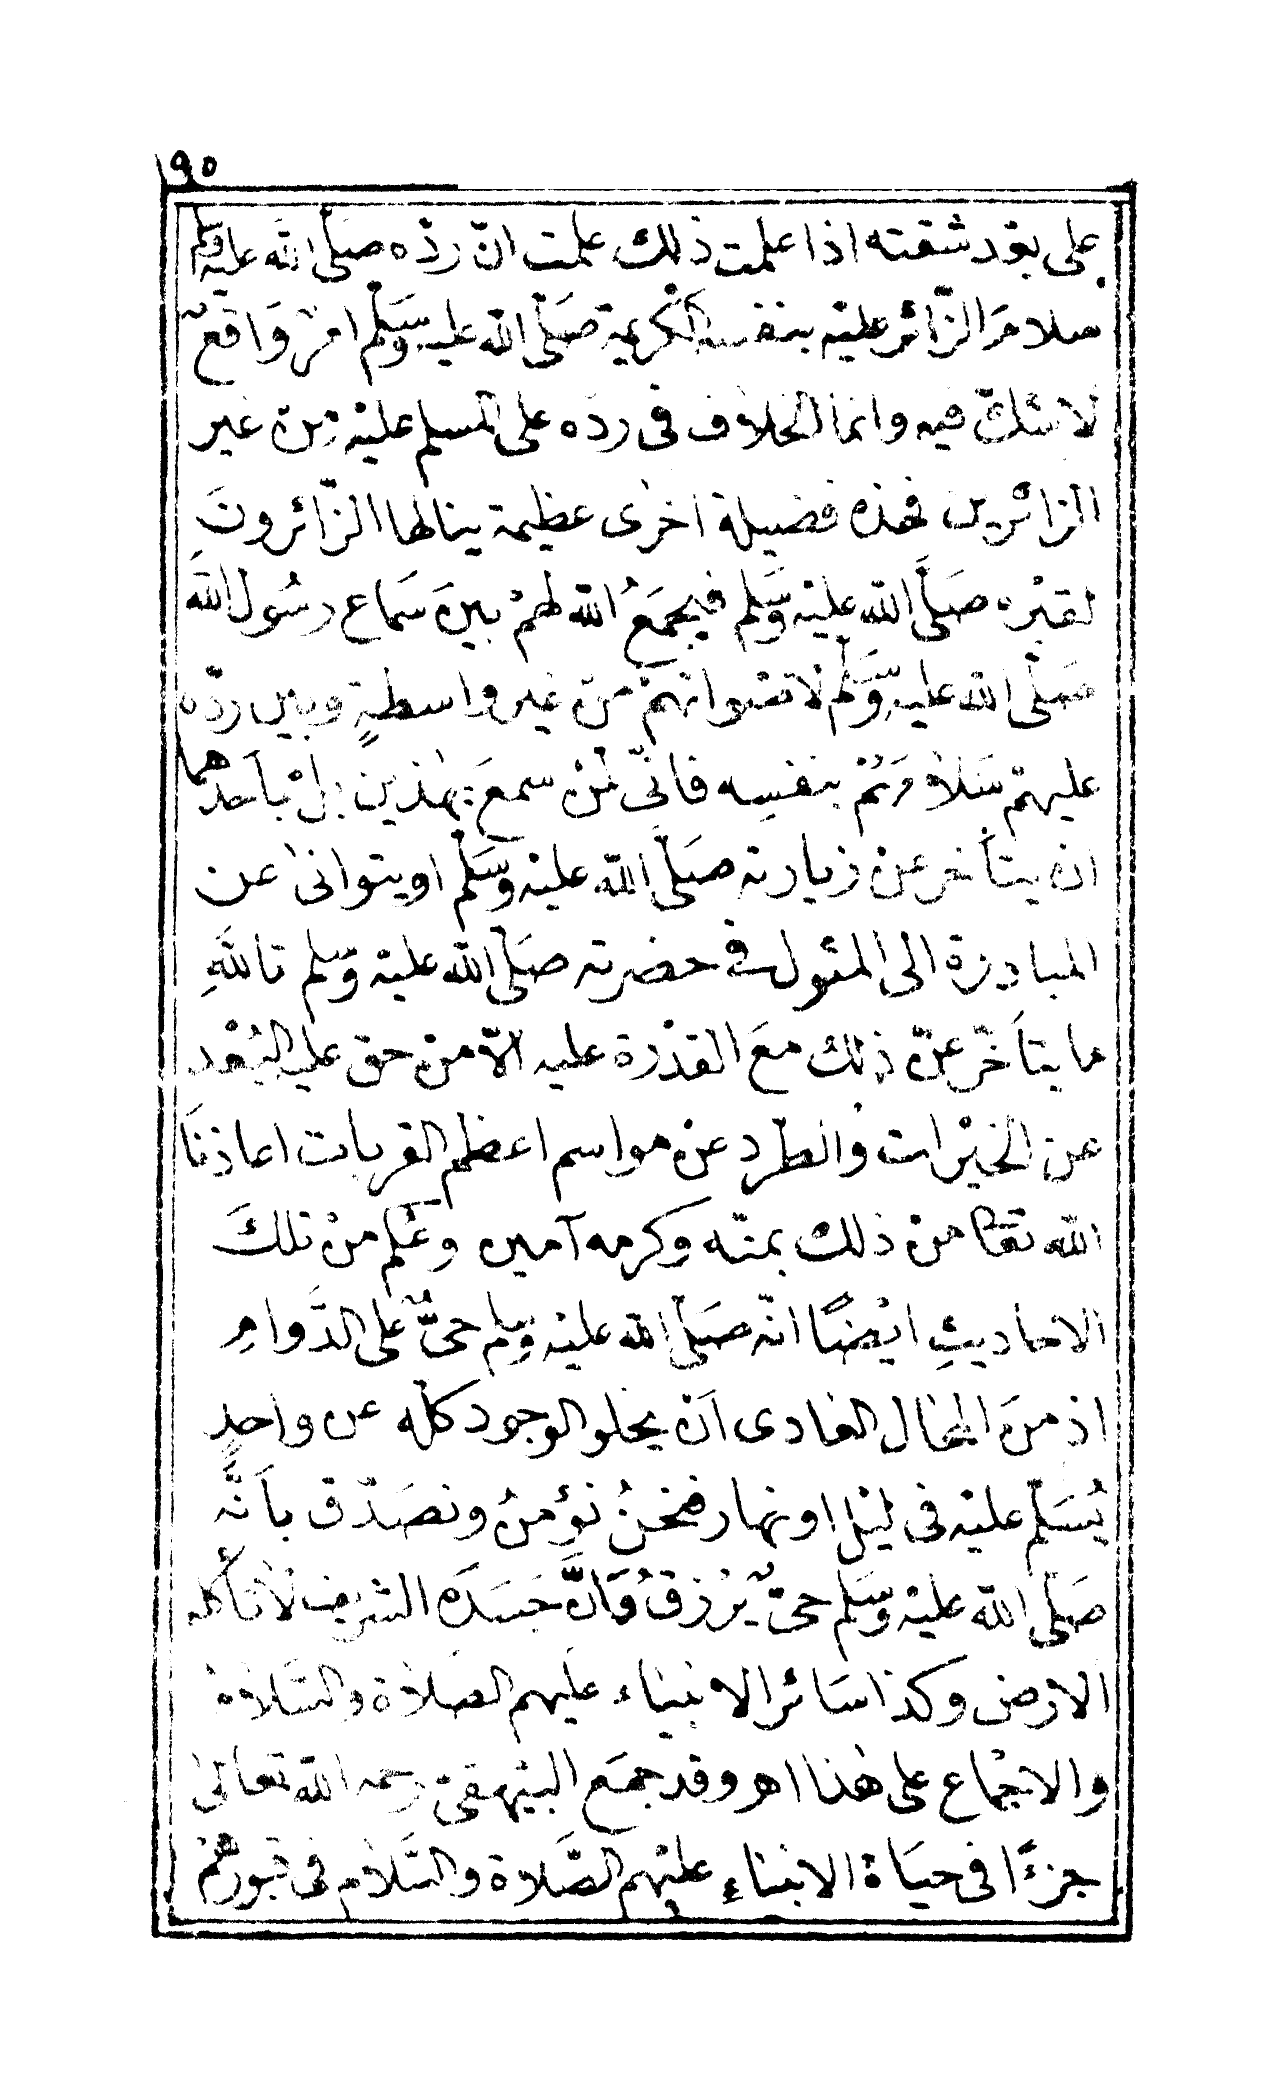 ١٩٠
على بعد شقته اذا علمت ذلك علمت انّ ردّه صَلّى الله عليه وسلم
سلامَ الزّائر عليْه بنفسه الكريمة صَلّى الله عليه وَسَلّم امرٌ وَاقعٌ
لا شكّ فيه وانما الخلاف فى رده على المسلم عليْه مِن غير
الزائرين فهذه فضيلة اخرٰى عظيمة ينالها الزّائرونَ
لقبْره صَلَّى الله عليْه وَسَلم فيجمَعُ الله لهمْ بينَ سَماع رسُول اللهَ
صَلّى الله عليْه وَسَلّم لاصْواتهمْ منْ غير واسطةٍ وبين ردّه
عليهمْ سَلامَهُمْ بنفسِه فانّى لمنْ سمعَ بهٰذين بل بأحدهما
ان يتأخر عن زيارته صَلّى الله عليْه وَسَلّم او يتوانىٰ عن
المبادرة الى المثول فى حضرته صَلّى الله عليْه وَسَلم تاللهِ
ما يتأخّر عنْ ذلكُ معَ القدْرة عليه الّا منْ حق عليه البُعْد
عن الخيْرات والطّرد عنْ مواسم اعظم القربات اعاذنَا
الله تعَالى من ذلك بمنّه وكرمه آمين وعُلم منْ تلكَ
الاحاديثِ ايْضًا انّه صَلّى الله عليْه وسلم حىٌّ على الدَّوامِ
اذ منَ المحال العادى اَن يخلو الوجود كلّه عن واحدٍ
يُسَلّم عليْه فى ليْل او نهار فنحنُ نؤمنُ ونصَدّق بأنَّه
صَلّى الله عليْه وسَلم حىّ يُرْزقُ وَانَّ جَسَدَه الشريف لا تأكله
الارض وكذا سَائر الانبيَاء عليهم الصلاة والسَّلام
والاجْماع على هٰذا اهـ وقد جمَع البيْهقى رحمه الله تعالىٰ
جزءًا فى حيَاة الانبيَاءِ عليْهم الصَّلاة والسَّلام فى قبورهمْ